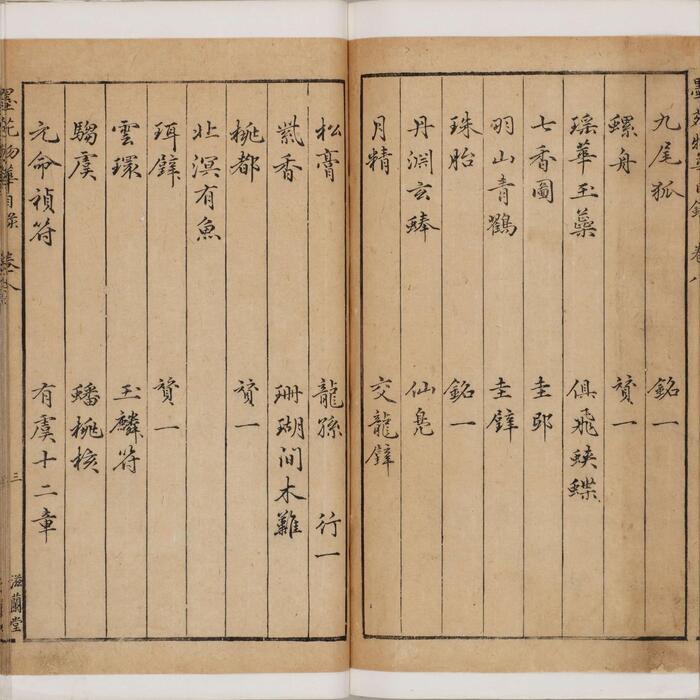 九尾狐 銘一
螺舟 贊一
瑤華玉蘂 俱飛蛺蝶
七香圖 圭邸
羽山青鶴 圭璧
珠胎 銘一
丹淵玄 仙鳧
月精 交龍璧
松膏 龍孫 行一
紫香 珊瑚間木難
桃都 贊一
北溟有魚
珥璧 贊一
雲環 玉麟符
騶虞 蟠桃核
元命禎符 有虞十二章
墨苑物華目錄 卷八 三 滋蘭堂